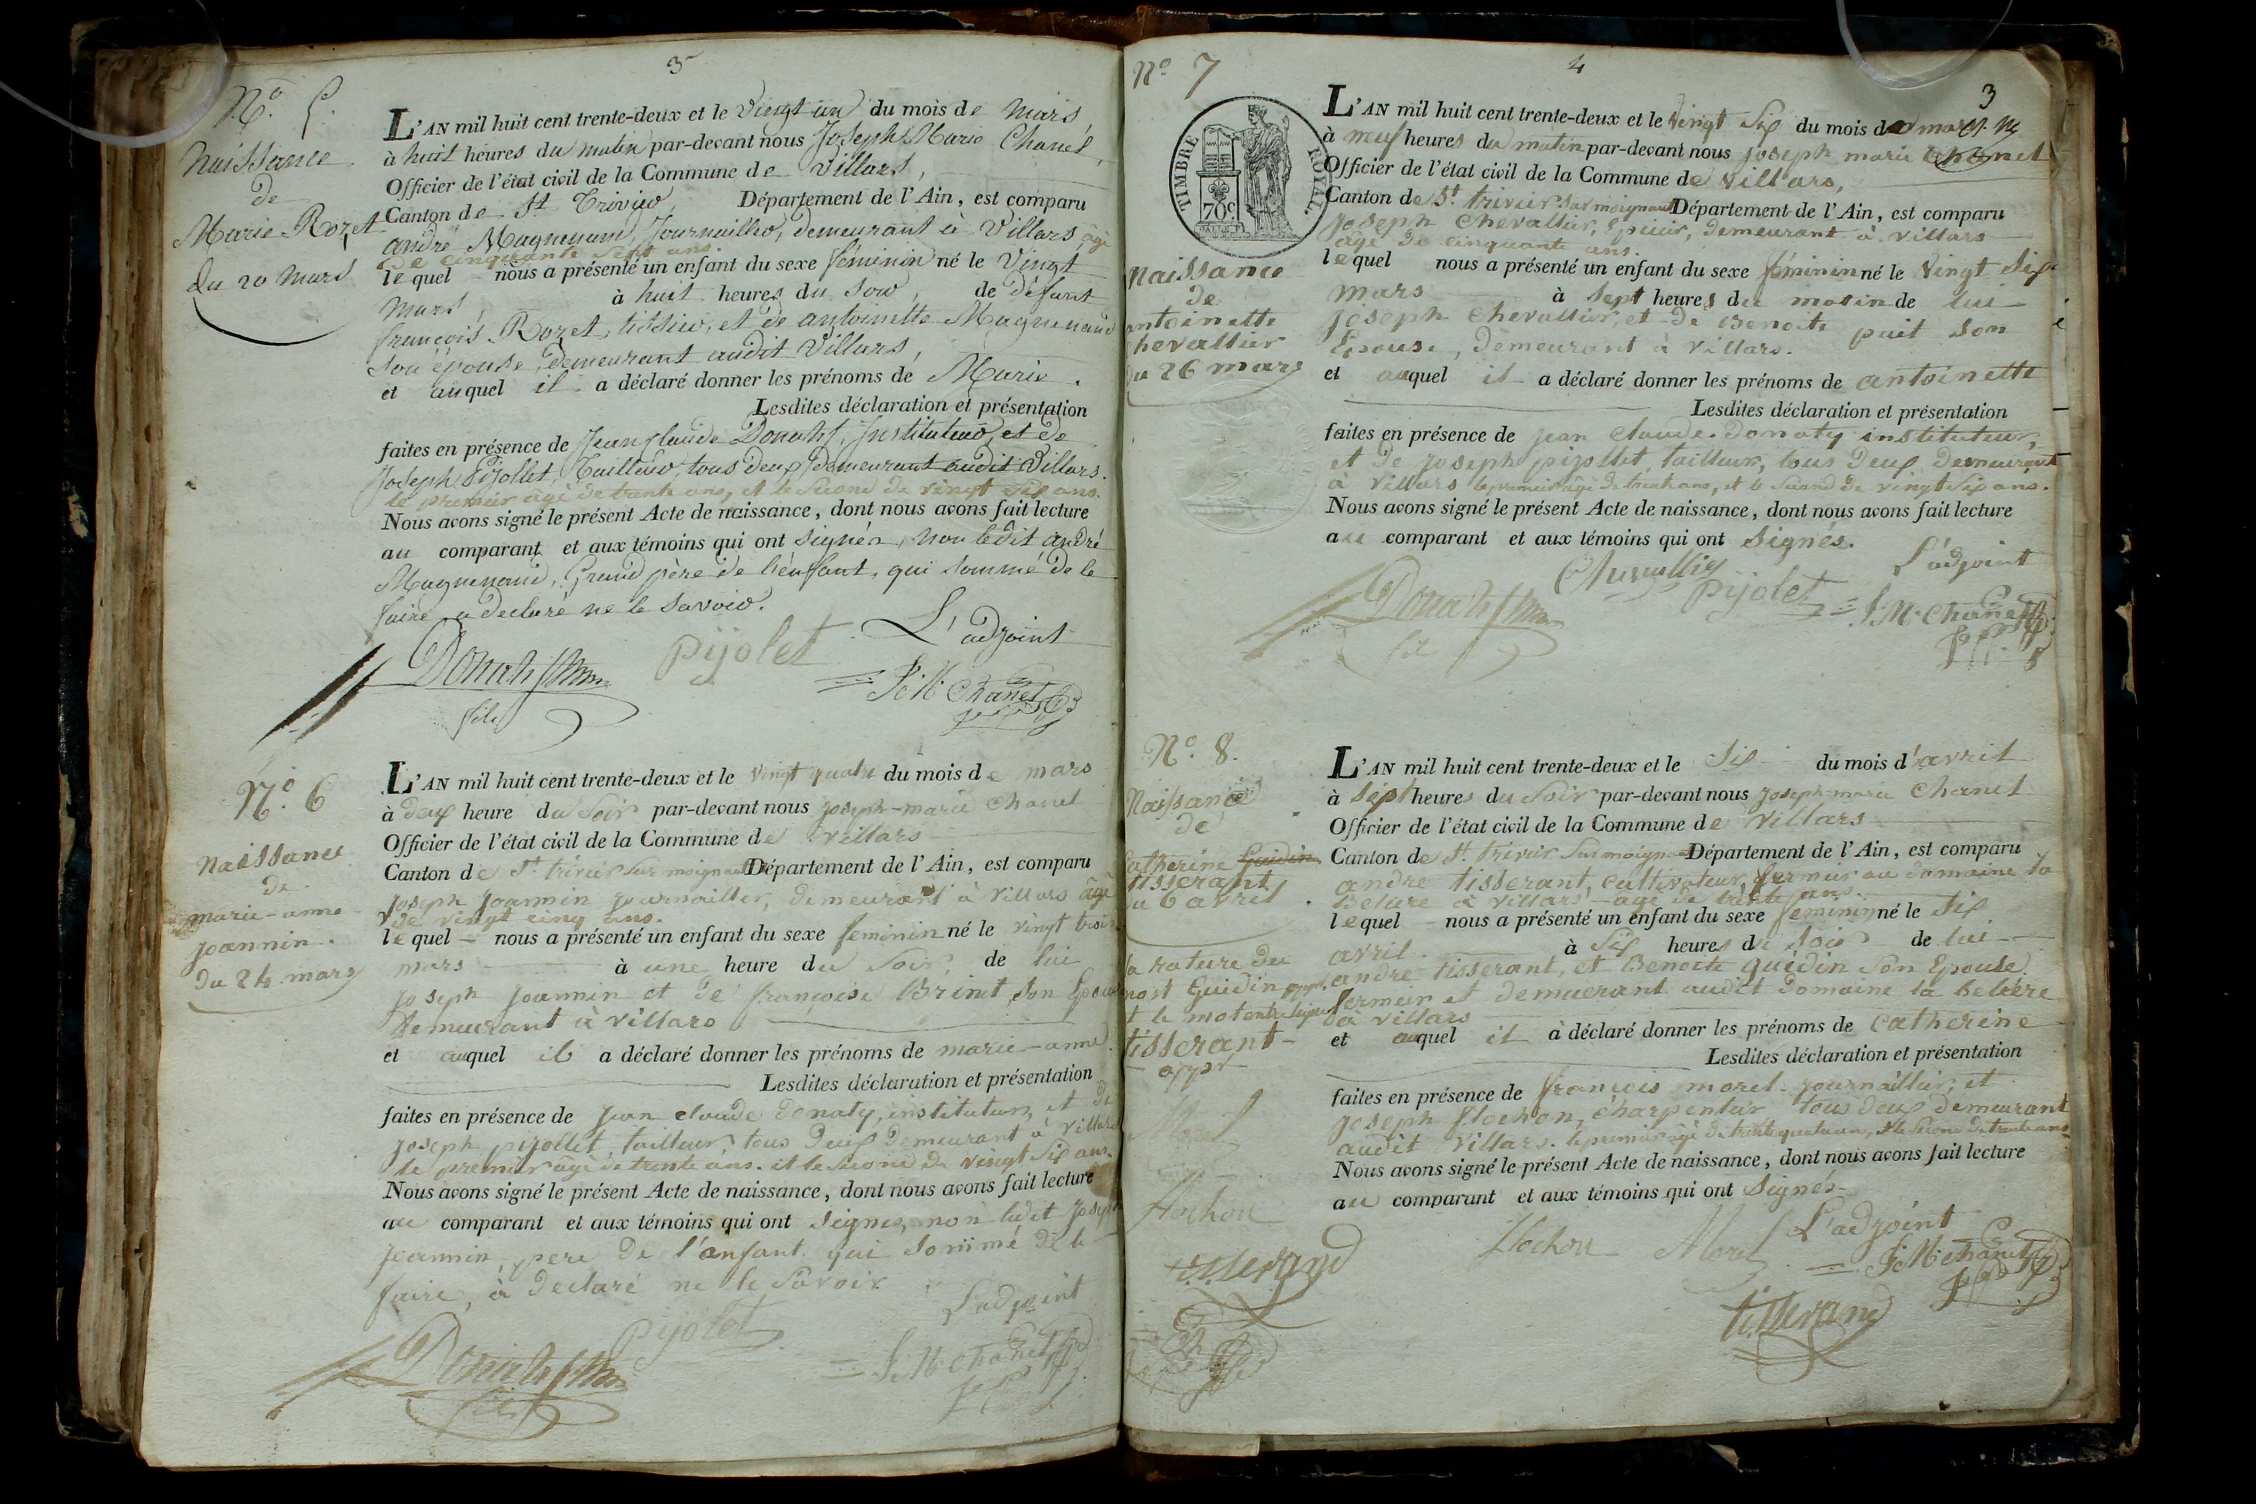 3
N.º 5.
Naissance
de
Marie Rozet
du 20 Mars
L'AN mil huit cent trente-deux et le Vingt un du mois de Mars
à huit heures du matin par-devant nous Joseph Marie Chanel,
Officier de l'état civil de la Commune de Villars,
Canton de St Trivier, Département de l'Ain, est comparu
andré Magnenaud Journailler, demeurant à Villars, âgé
de cinquante sept ans.
lequel nous a présenté un enfant du sexe féminin né le Vingt
Mars, à huit heures du soir, de défunt
françois Rozet, tissier, et de antoinette Magnenaud
son épouse, demeurant audit Villars,
et auquel il a déclaré donner les prénoms de Marie.
Lesdites déclaration et présentation
faites en présence de Jean Claude Donaty, Instituteur, et de
Joseph Pijollet, Tailleur, tous deux demeurant audit Villars.
le premier âgé de trente ans, et le second de vingt six ans.
Nous avons signé le présent Acte de naissance, dont nous avons fait lecture
au comparant et aux témoins qui ont signés, non ledit andré
Magnenaud, Grand père de l'enfant, qui sommé de le
faire a declaré ne le savoir.
L'adjoint
Donaty
fils
pijolet
J. M. Chanel
Nº. 6
Naissance
de
marie-anne
joannin.
du 24 mars
L'AN mil huit cent trente-deux et le vingt quatre du mois de mars
à deux heure du soir par-devant nous joseph-marie Chanel
Officier de l'état civil de la Commune de Villars
Canton de St. trivier sur moignans Département de l'Ain, est comparu
joseph joannin journaillier, demeurant à Villars âgé
de vingt cinq ans.
lequel nous a présenté un enfant du sexe feminin né le vingt trois
mars à une heure du soir, de lui
joseph joannin et de françoise Brinet son Epouse
demeurant à Villars
et auquel il a déclaré donner les prénoms de marie-anne
Lesdites déclaration et présentation
faites en présence de jean claude donaty, instituteur, et de
joseph pijollet, tailleur, tous deux demeurant à Villars
le premier âgé de trente ans. et le second de vingt six ans.
Nous avons signé le présent Acte de naissance, dont nous avons fait lecture
au comparant et aux témoins qui ont signés, non ledit joseph
joannin, pere de l'enfant qui sommé de le
faire, à declaré ne le savoir
L'adjoint
Donaty
fils
pijolet
J. M. Chanel
4
3
Nº 7
TIMBRE ROYAL.
70c.
Naissance
de
antoinette
chevallier
du 26 mars
L'AN mil huit cent trente-deux et le Vingt six du mois de mars
à neuf heures du matin par-devant nous joseph marie Chanel
Officier de l'état civil de la Commune de Villars,
Canton de St. trivier sur moignans Département de l'Ain, est comparu
joseph chevallier, Epicier, demeurant à Villars
âgé de cinquante ans.
lequel nous a présenté un enfant du sexe féminin né le Vingt six
mars à sept heures du matin de lui
joseph chevallier, et de Benoite puit son
Epouse, demeurant à Villars.
et auquel il a déclaré donner les prénoms de antoinette
Lesdites déclaration et présentation
faites en présence de jean claude donaty instituteur,
et de joseph pijollet, tailleur, tous deux demeurant
à Villars le premier âgé de trente ans, et le second de vingt six ans.
Nous avons signé le présent Acte de naissance, dont nous avons fait lecture
au comparant et aux témoins qui ont signés.
L'adjoint
Chevallier
Donaty
fils
pijolet
J. M. Chanel
Nº. 8.
Naissance
de
Catherine Guidin
tisserant
du 6 avril
la rature du
mot Guidin appr.
et le mot entre ligne
tisserant
appr
Morel
flochon
tisserand
L'AN mil huit cent trente-deux et le six du mois d'avril
à sept heures du soir par-devant nous joseph-marie Chanel
Officier de l'état civil de la Commune de Villars
Canton de St. trivier sur moignans Département de l'Ain, est comparu
andre tisserant, cultivateur, fermier au domaine la
beliere à Villars âgé de trente ans.
lequel nous a présenté un enfant du sexe feminin né le six
avril à six heures du soir de lui
andre tisserant, et Benoite guédin son Epouse
fermier et demeurant audit domaine la beliere
à Villars
et auquel il à déclaré donner les prénoms de catherine
Lesdites déclaration et présentation
faites en présence de françois morel journaillier, et
joseph flochon, charpentier tous deux demeurant
audit Villars. le premier âgé de trente quatre ans, et le second de trente ans
Nous avons signé le présent Acte de naissance, dont nous avons fait lecture
au comparant et aux témoins qui ont signés
L'adjoint
flochon
Morel
J. M. Chanel
tisserand